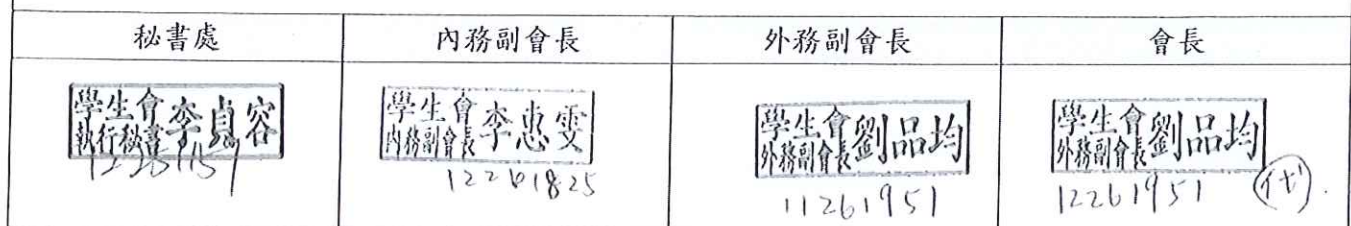 秘書處 內務副會長 外務副會長 會長
學生會 執行秘書 李貞容
學生會 內務副會長 李惠雯
12261825
學生會 外務副會長 劉品均
11261951
學生會 外務副會長 劉品均
12261951 (代)